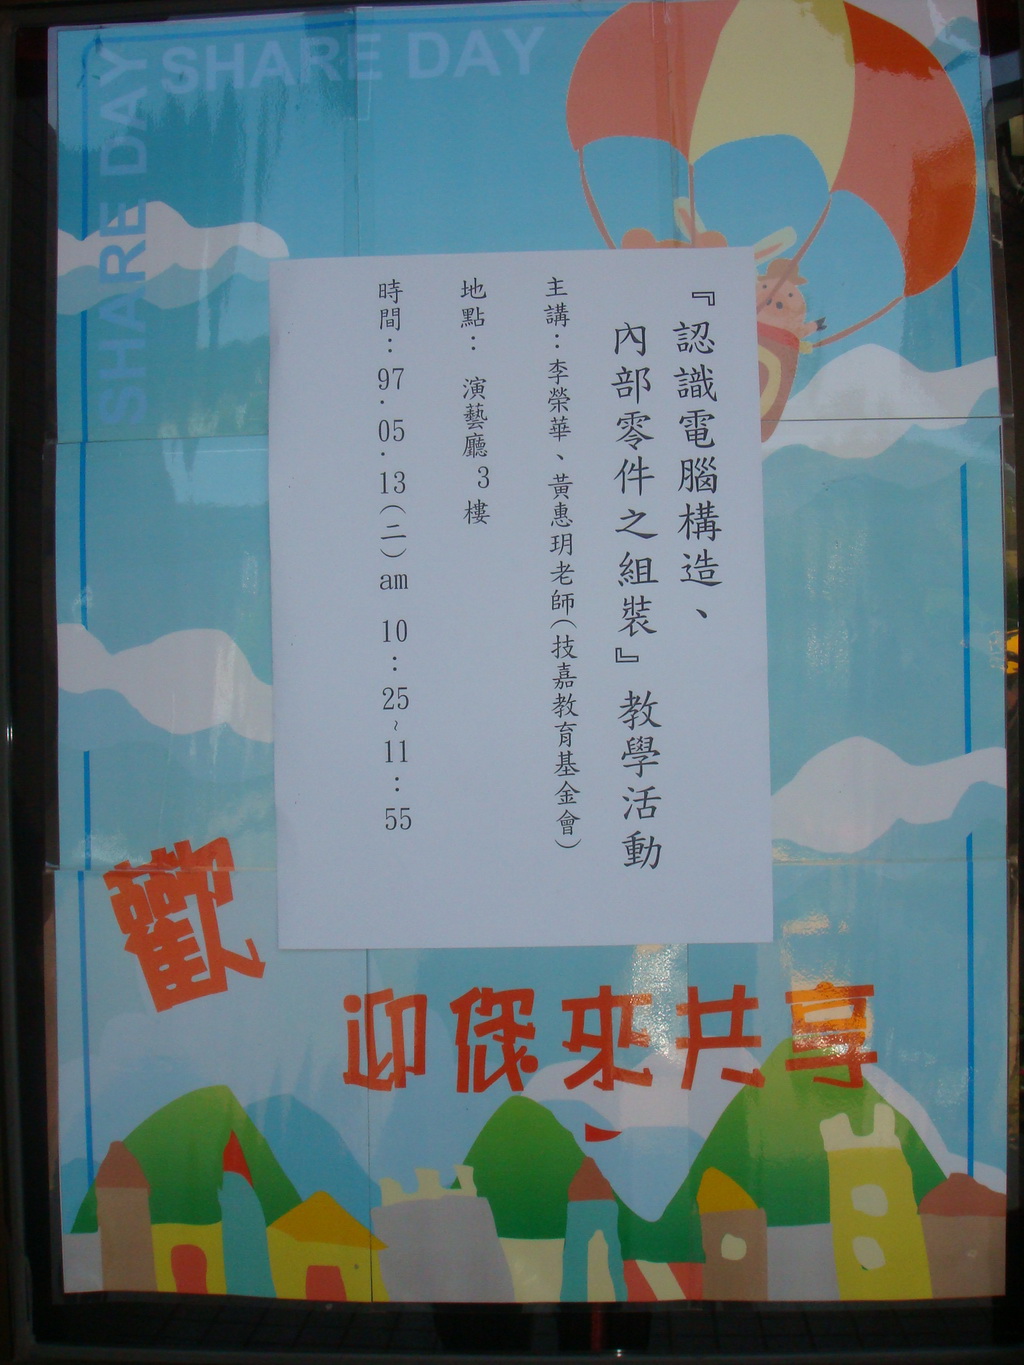 SHARE DAY
SHARE DAY
『認識電腦構造、
內部零件之組裝』教學活動
主講：李榮華、黃惠玥老師（技嘉教育基金會）
地點： 演藝廳 3 樓
時間：97．05．13（二）am 10：25~11：55
歡迎您來共享